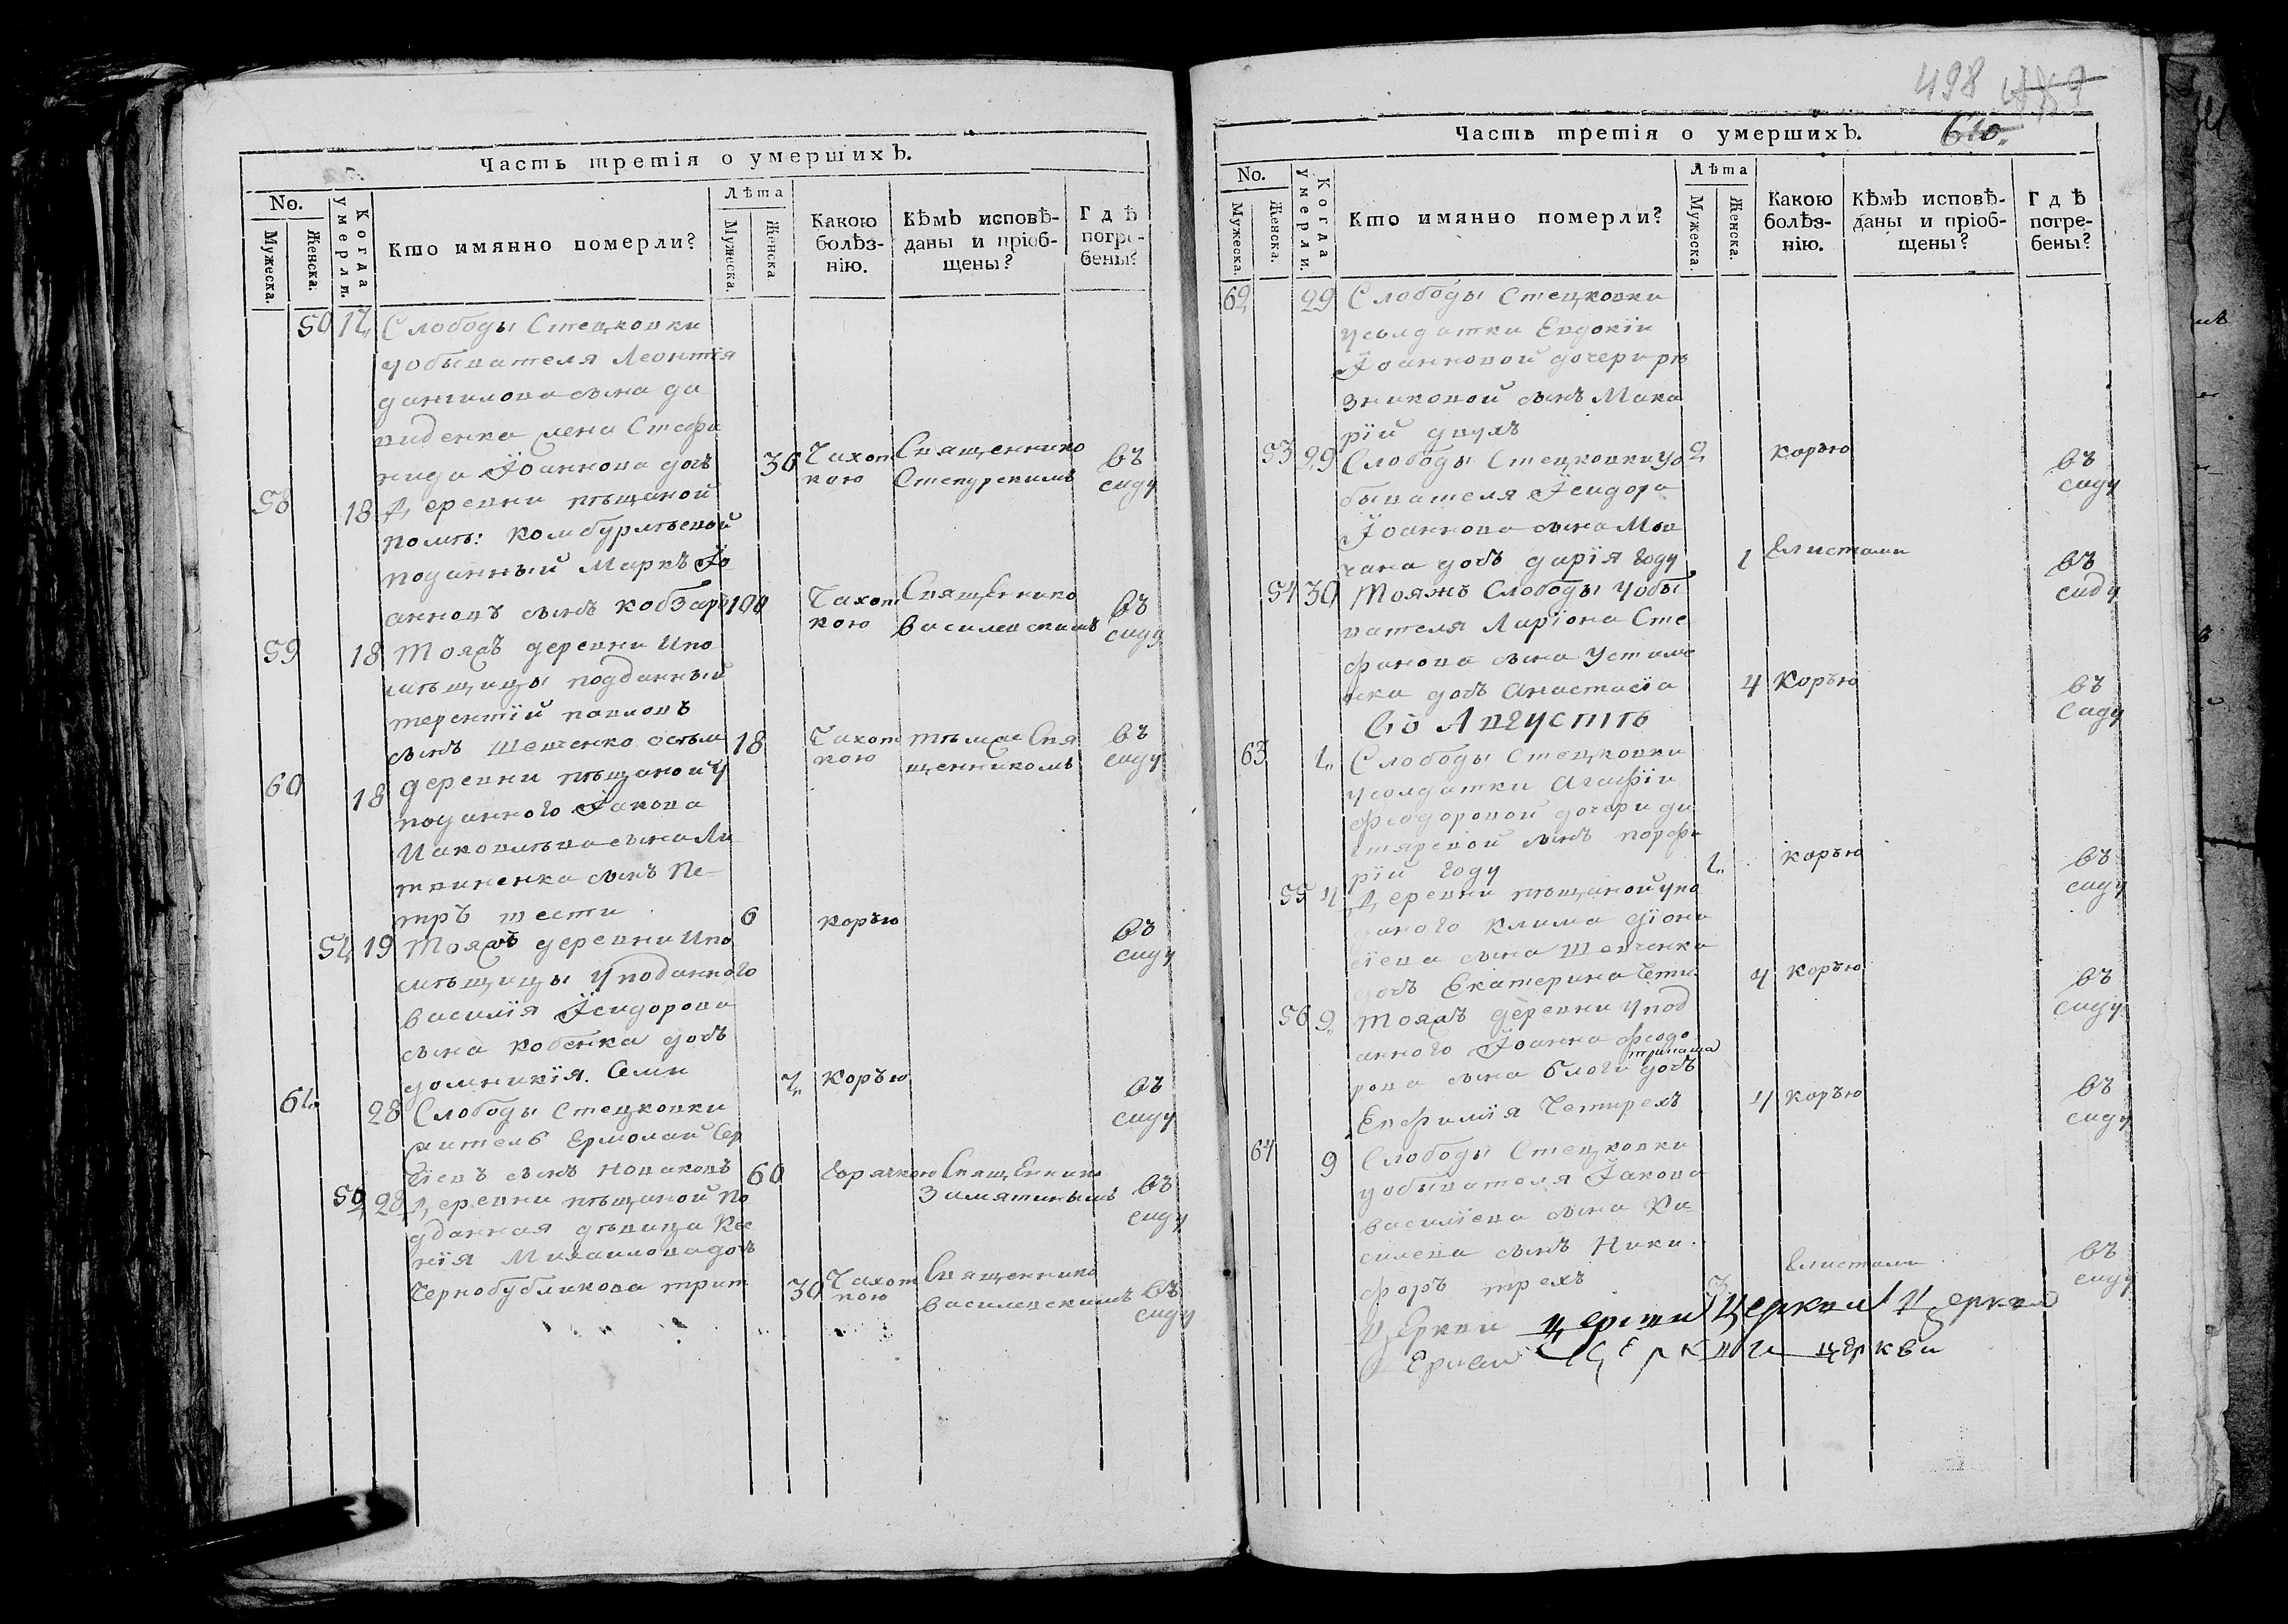 Часть третія о умершихъ.
No.
Мужеска.
Женска.
Когда умерли.
Кто имянно померли?
Лѣта
Мужеска.
Женска
Какою болѣз-нію.
Кѣмъ исповѣ-даны и пріоб-щены?
Гдѣ погре-бены?
50 17 Слободы Стецковки
у обывателя Леонтія
данилова сына да
виденка жена Стефа
нида Іоаннова дочь 36 Чахот Священнико въ
кою саду
58 18 Деревни пѣщаной
помѣ: комбурлѣевой
поданный Маркъ Іо
анновъ сынъ кобзарь 100 Чахот Священнико въ
кою василевскимъ саду
59 18 Тояжъ деревни и по
мѣщицы подданный
терентій павловъ
сынъ Шевченко осьм 18 Чахот тѣмже Свя въ
кою щенникомъ саду
60 18 деревни пѣщаной у
поданного Іакова
Иаковлѣва сына Ли
твиненка сынъ Пе-
тръ шести 6 корью въ
саду
51 19 Тояжъ деревни и по
мѣщицы у поданного
василія Ісидорова
сына кобенка дочь
домникія Семи 7 корью въ
саду
61 28 Слободы Стецковки
житель Ермолай Сер
гіевъ сынъ Новаковъ 60 Горячкою Священнико
Замятинымъ въ
саду
52 28 Деревни пѣщаной по
дданная дѣвица Ксе
нія Михаилова дочь
Чернобубликова трит 30 Чахот Священнико
кою василевскимъ въ
саду
498
610.
Часть третія о умершихъ.
No.
Мужеска.
Женска.
Когда умерли.
Кто имянно померли?
Лѣта
Мужеска.
Женска.
Какою болѣз-нію.
Кѣмъ исповѣ-даны и пріоб-щены?
Гдѣ погре-бены?
62 29 Слободы Стецковки
у солдатки Евдокіи
Іоанновой дочери рѣ
зниковой сынъ Мака
рій двухъ 2 корью въ
саду
53 29 Слободы Стецковки у о
бывателя Ісидора
Іоаннова сына Мов
чана дочь дарія году 1 Глистами въ
саду
54 30 Тояжъ Слободы у обы
вателя Ларіона Сте
фанова сына Устиме
нка дочь Анастасіа 4 Корью въ
саду
Въ Августѣ
63 1 Слободы Стецковки
у солдатки Агафіи
Феодоровой дочери ди
тяревой сынъ порфи
рій году 1 корью въ
саду
55 4 Деревни пѣщаной у по
даного Клима діони
сіева сына Шевченка
дочь Екатерина Чети 4 Корью въ
саду
56 9 Тояжъ деревни у под
анного Іоанна Феодо
рова сына блоги дочь
Евфимія Четирехъ 4 корью въ
саду
64 9 Слободы Стецковки
у обывателя Іакова
василіева сына Ва
силева сынъ Ники
форъ трехъ 3 Глистами въ
саду
Церкви церкви Церкви Церкви
Церкви Церкви церкви